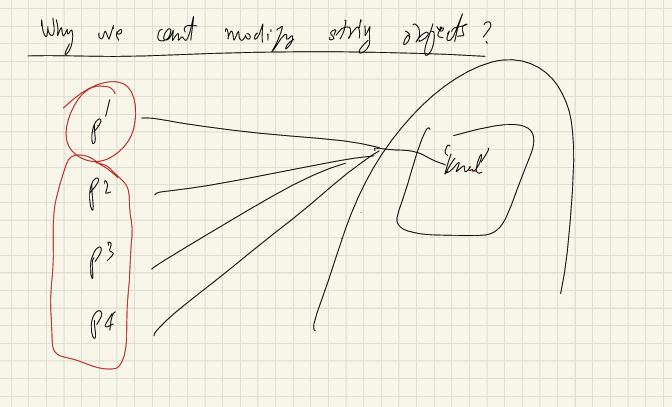 Why we cant modify string objects ?
p1
p2
p3
p4